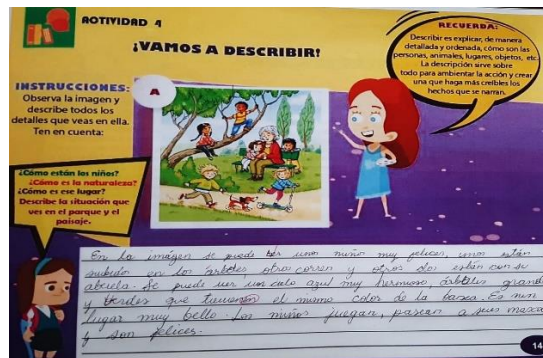 ACTIVIDAD 4
¡VAMOS A DESCRIBIR!
RECUERDA:
Describir es explicar, de manera
detallada y ordenada, cómo son las
personas, animales, lugares, objetos, etc.
La descripción sirve sobre
todo para ambientar la acción y crear
una que haga más creíbles los
hechos que se narran.
INSTRUCCIONES:
Observa la imagen y
describe todos los
detalles que veas en ella.
Ten en cuenta:
A
¿Cómo están los niños?
¿Cómo es la naturaleza?
¿Cómo es ese lugar?
Describe la situación que
ves en el parque y el
paisaje.
En la imágen se puede ver unos niños muy felices, unos están
subido en los árboles otros corren y otros dos están con su
abuela. Se puede ver un cielo azul muy hermoso, árboles grand
y verdes que tienen el mismo color de la Es un
lugar muy bello. Los niños juegan, pasean a sus masco
y son felices.
14